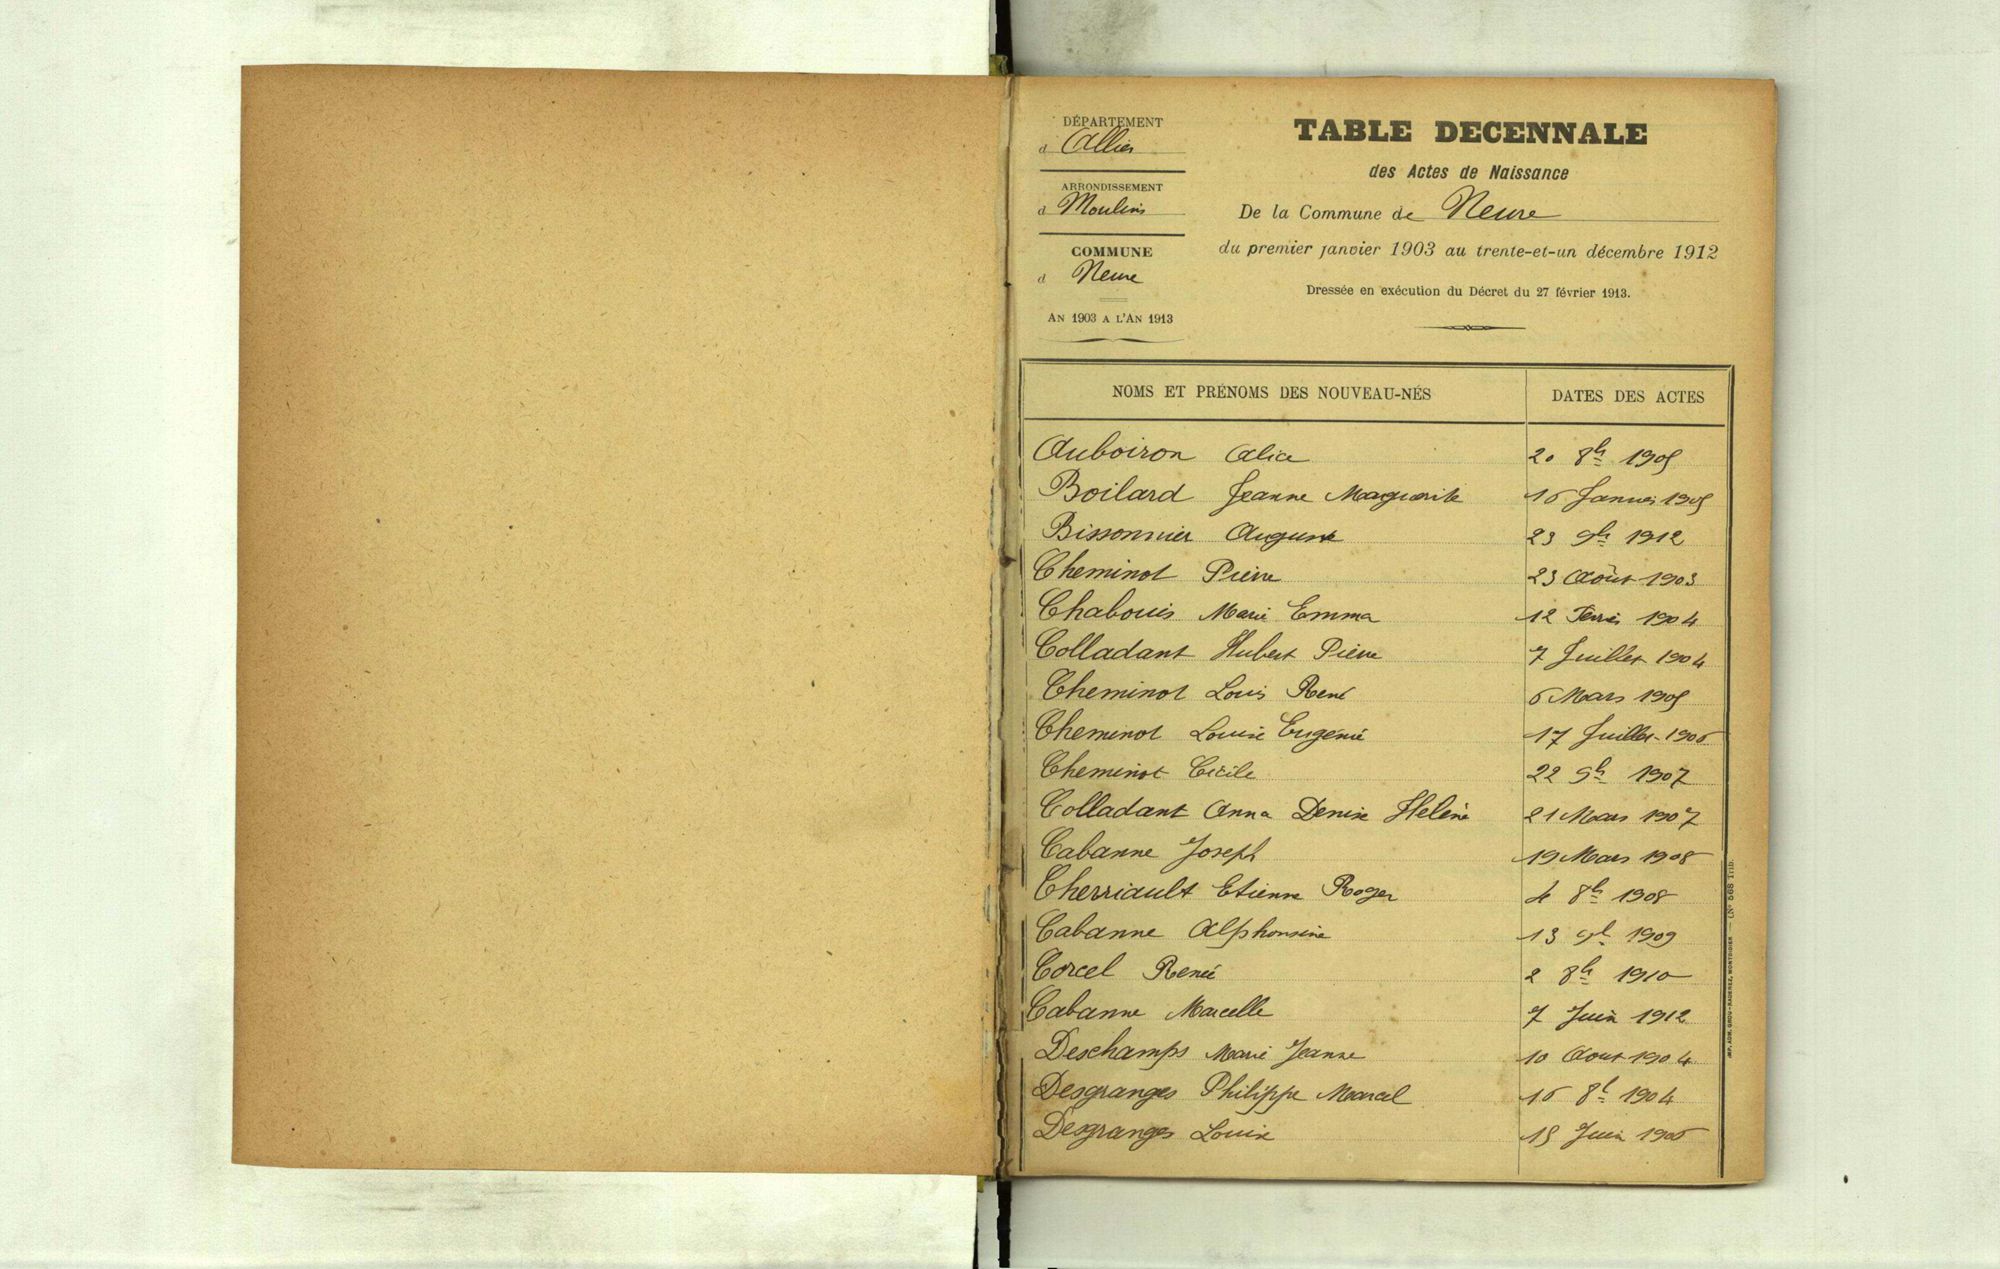 DÉPARTEMENT
d Allier
ARRONDISSEMENT
d Moulins
COMMUNE
d Neure
AN 1903 A L'AN 1913
TABLE DECENNALE
des Actes de Naissance
De la Commune de Neure
du premier janvier 1903 au trente-et-un décembre 1912
Dressée en exécution du Décret du 27 février 1913.
NOMS ET PRÉNOMS DES NOUVEAU-NÉS DATES DES ACTES
Auboiron Alice 20 8b 1905
Boilard Jeanne Marguerite 16 Janvier 1905
Bissonnier Auguste 23 9b 1912
Cheminot Pierre 23 Août 1903
Chabouis Marie Emma 12 1904
Colladant Hubert Pierre 7 Juillet 1904
Cheminot Louis René 6 Mars 1905
Cheminot Louise Eugenie 17 Juillet 1906
Cheminot Cécile 22 9b 1907
Colladant Anna Denise Helène 21 Mars 1907
Cabanne Joseph 19 Mars 1908
Cherriault Etienne Roger 4 8b 1908
Cabanne Alphonsine 13 9b 1909
Corcel Renée 2 8b 1910
Cabanne Marcelle 7 Juin 1912
Deschamps Marie Jeanne 10 Aout 1904
Desgranges Philippe Marcel 16 8b 1904
Desgranges Louise 15 Juin 1906